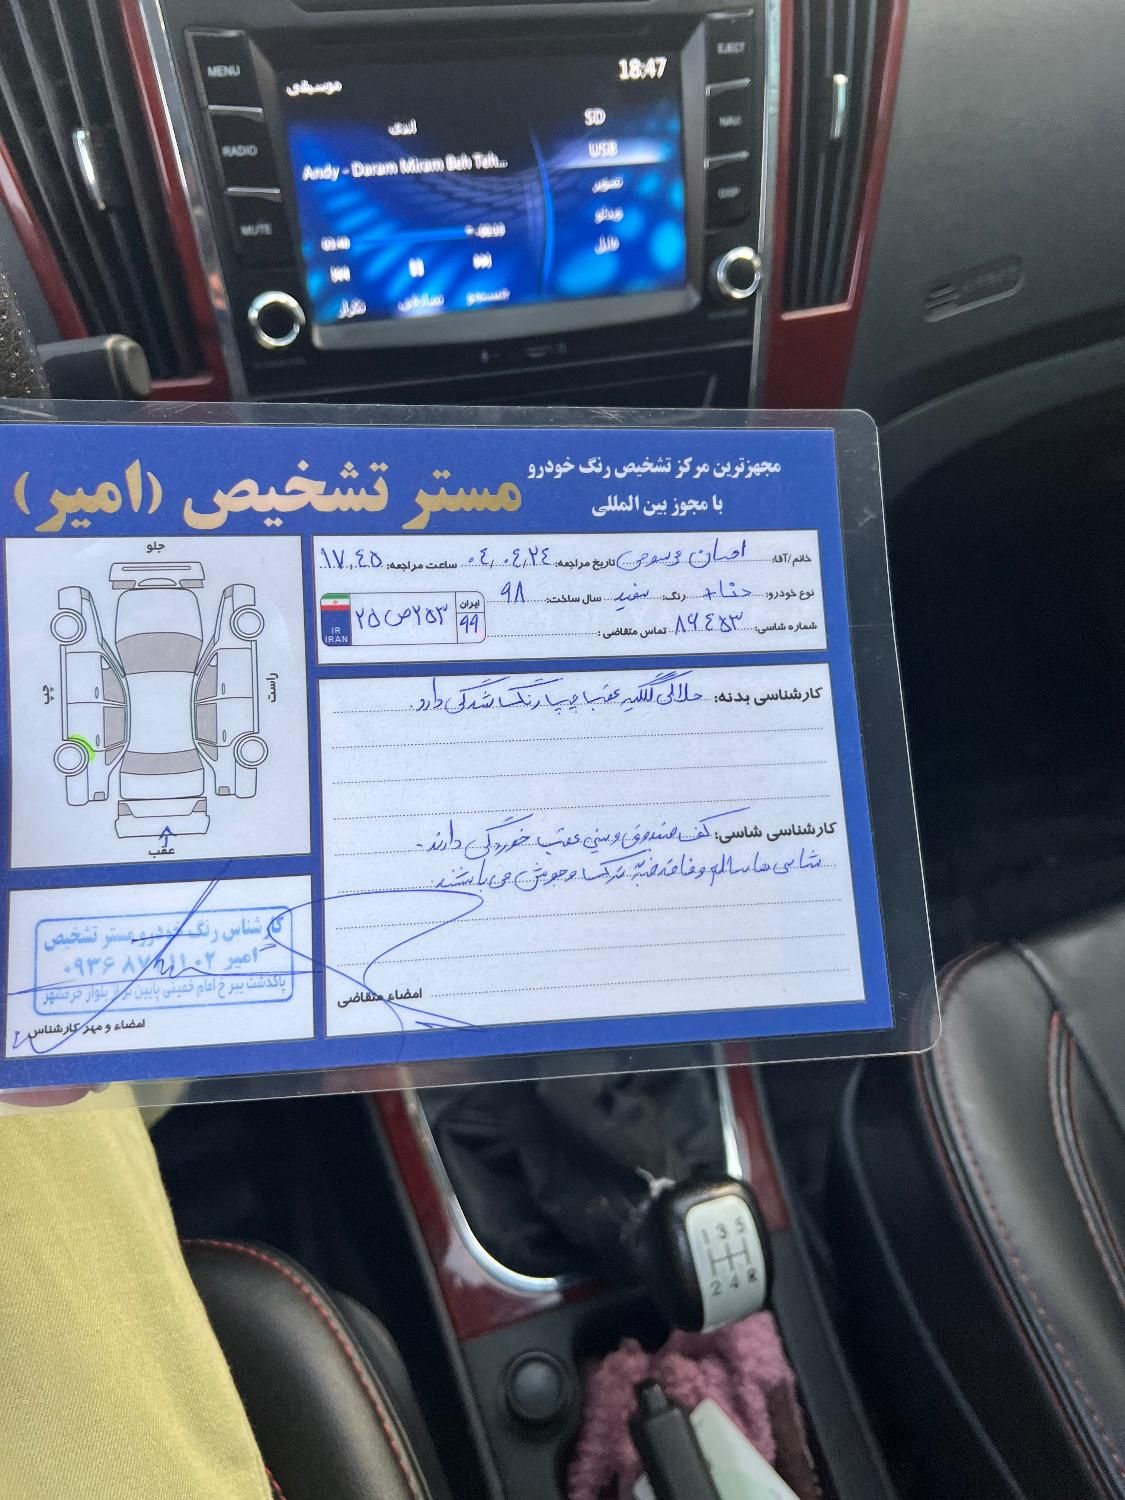 MENU
RADIO
MUTE
EJECT
NAVI
DISP
18:47
موسیقی
اندی
SD
USB
Andy - Daram Miram Beh Teh...
تصویر
ویدئو
فایل
03:48
تکرار
تصادفی
جستجو
مجهزترین مرکز تشخیص رنگ خودرو
با مجوز بین المللی
مستر تشخیص (امیر)
خانم/آقا: احسان موسوی تاریخ مراجعه: ۰۴/۰۴/۲۴ ساعت مراجعه: ۱۷،۴۵
نوع خودرو: دنا+ رنگ: سفید سال ساخت: ۹۸
شماره شاسی: ۸۶۴۵۳ تماس متقاضی:
ایران
۹۹
۲۵ ص ۲۵۳
I.R.
IRAN
جلو
چپ
راست
عقب
کارشناسی بدنه: هلالی گلگیر عقب چپ رنگ شدگی دارد.
کارشناسی شاسی: کف صندوق و سینی عقب خوردگی دارند.
شاسی ها سالم و فاقد ضربه ترک و جوش می باشند.
امضاء متقاضی
کارشناس رنگ خودرو مستر تشخیص
پاکدشت بیر خ امام خمینی پایین تر از بلوار خرمشهر
امضاء و مهر کارشناس
1 3 5
2 4 R